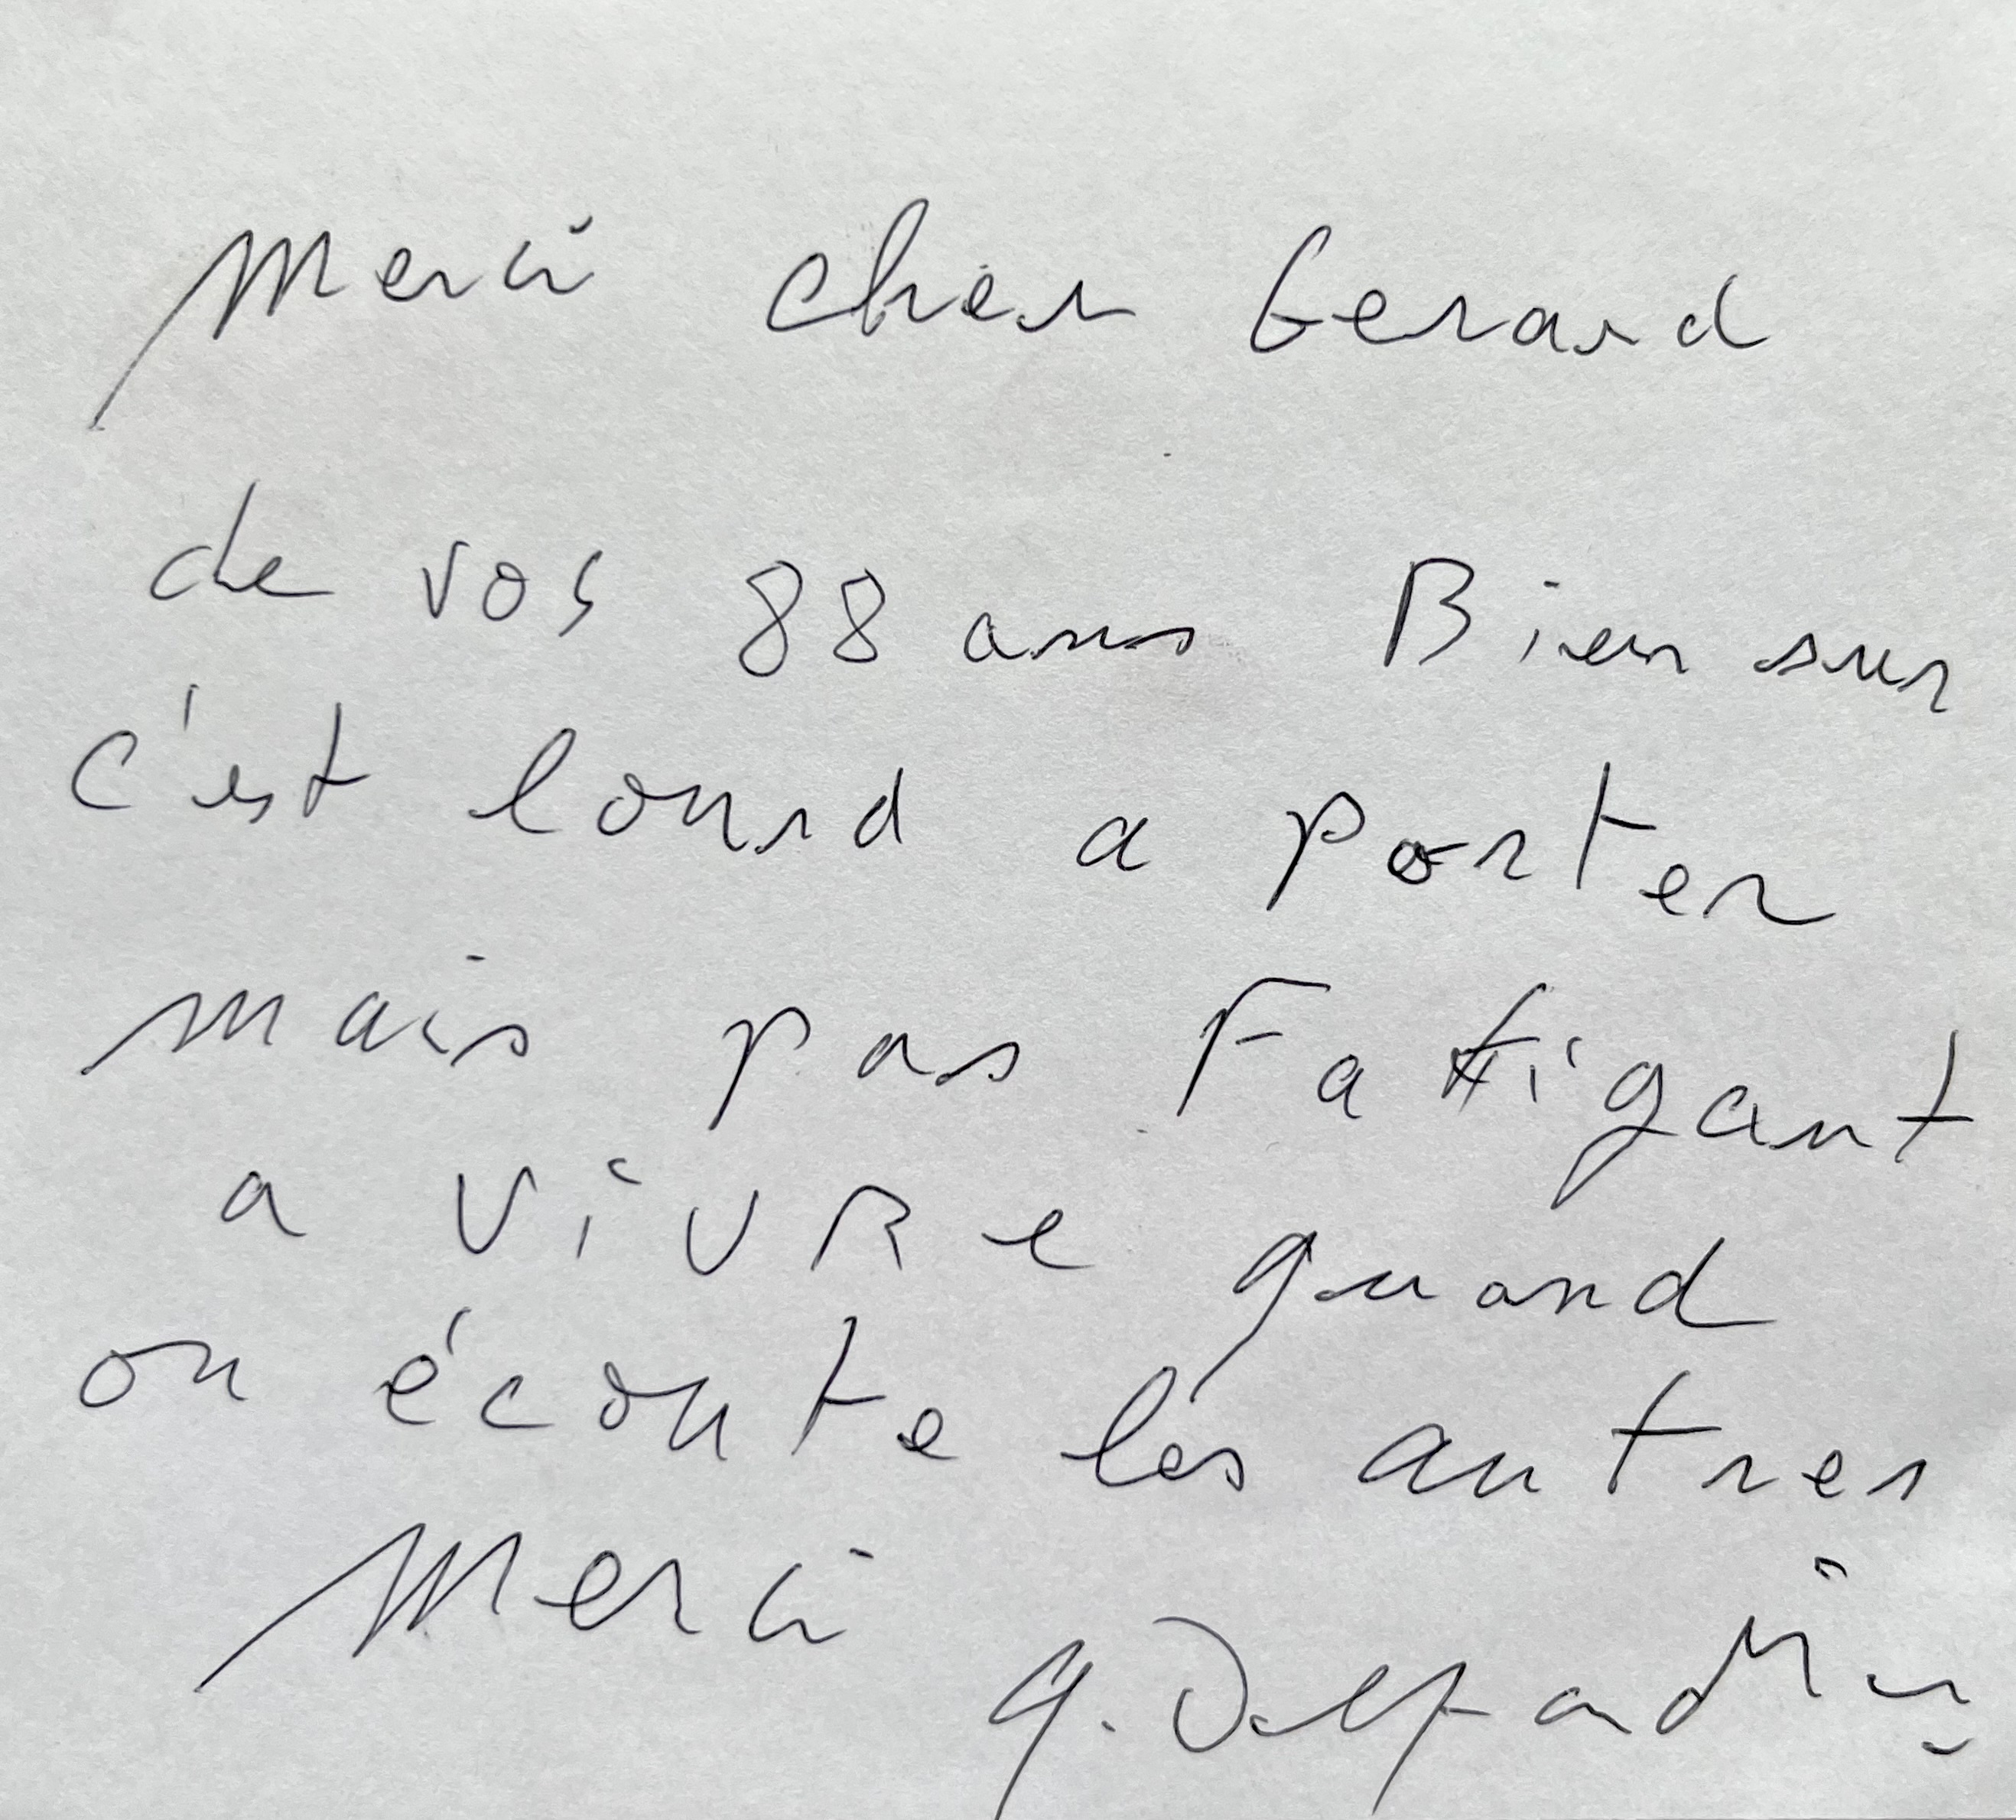 Merci cher Gerard
de vos 88 ans Bien sur
c'est lourd a porter
mais pas Fatigant
a viVRe quand
on écoute les autres
Merci